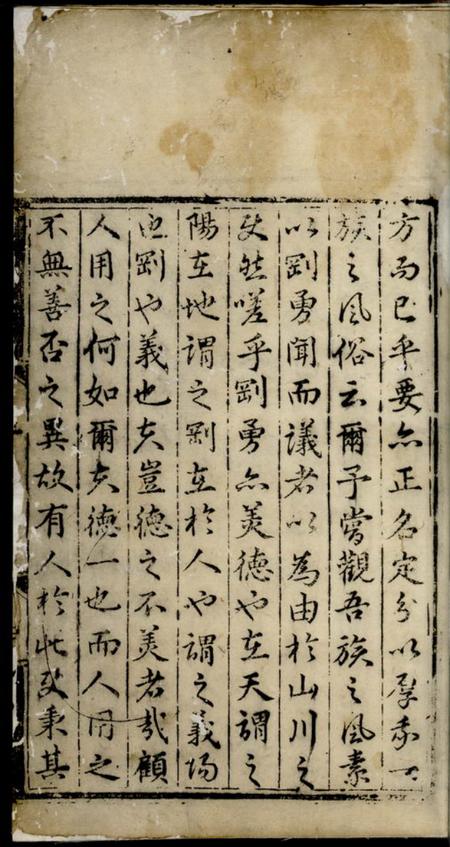 方而已乎要亦正名定分以厚来一
族之风俗云爾予嘗觀吾族之风素
以剛勇聞而議者以為由於山川之
使然嗟乎剛勇亦美德也在天謂之
陽在地謂之剛在於人也謂之義陽
也剛也義也夫豈德之不美者哉顧
人用之何如爾夫德一也而人用之
不無善否之異故有人於此安秉其